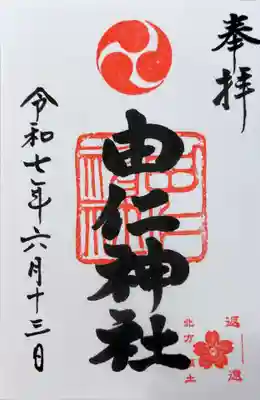 奉拝
由仁神社
令和七年六月十三日